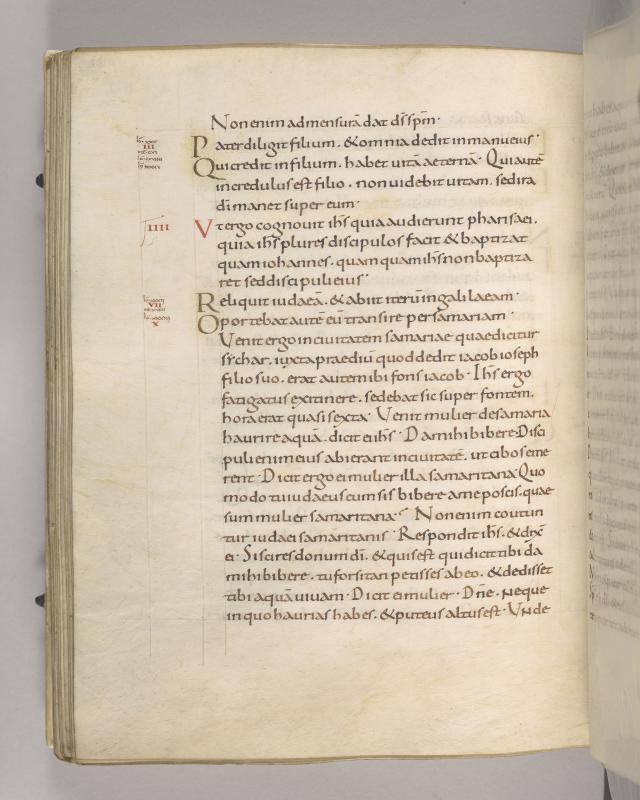 Non enim admensurā dat d̄s sp̄m·
Pater diligit filium. & omnia dedit inmanu eius·
Qui credit infilium. habet uitā aeternā· Qui autē
incredulus est filio. non uidebit uitam. sed ira
dī manet super eum·
IIII
Vt ergo cognouit ih̄s quia audierunt pharisaei.
quia ih̄s plures discipulos facit & baptizat
quam iohannes. quam quam ih̄s non baptiza
ret sed discipuli eius·
Reliquit iudaeā. & abiit iterū in galilaeam·
VII
Oportebat autē eū transire per samariam·
X
Venit ergo in ciuitatem samariae quae dicitur
sychar. iuxta praediū quod dedit iacob ioseph
filio suo. erat autem ibi fons iacob· Ih̄s ergo
fatigatus ex itinere. sedebat sic super fontem.
hora erat quasi sexta· Venit mulier de samaria
haurire aquā. dicit ei ih̄s· Da mihi bibere· Disci
puli enim eius abierant in ciuitatē. ut cibos eme
rent· Dicit ergo ei mulier illa samaritana· Quo
modo tu iudaeus cum sis bibere a me poscis. quae
sum mulier samaritana· Non enim coutun
tur iudaei samaritanis· Respondit ih̄s. & dix̄
ei· Si scires donum dī. & quis est qui dicit tibi da
mihi bibere. tu forsitan petisses ab eo. & dedisset
tibi aquā uiuam· Dicit ei mulier· Dn̄e. neque
in quo haurias habes. & puteus altus est· Unde